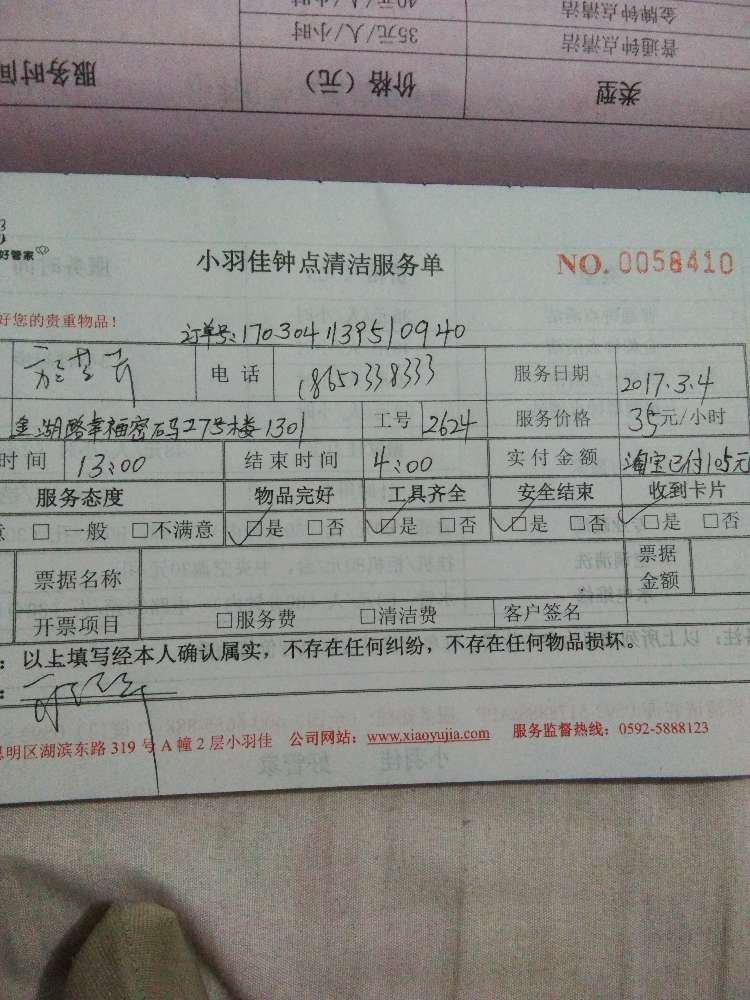 40元/人/小时 金牌钟点清洁
35元/人/小时 普通钟点清洁
服务时间 价格（元） 类型
好管家
小羽佳钟点清洁服务单 NO. 0058410
好您的贵重物品！
订单号:1703041139510940
电话 18652338333 服务日期 2017.3.4
金湖路幸福密码27号楼1301 工号 2624 服务价格 35元/小时
时间 13:00 结束时间 4:00 实付金额 淘宝已付105元
服务态度 物品完好 工具齐全 安全结束 收到卡片
意 □一般 □不满意 ☑是 □否 ☑是 □否 ☑是 □否 ☑是 □否
票据名称 票据金额
开票项目 □服务费 □清洁费 客户签名
：以上填写经本人确认属实，不存在任何纠纷，不存在任何物品损坏。
思明区湖滨东路 319 号 A 幢 2 层小羽佳 公司网站：www.xiaoyujia.com 服务监督热线：0592-5888123